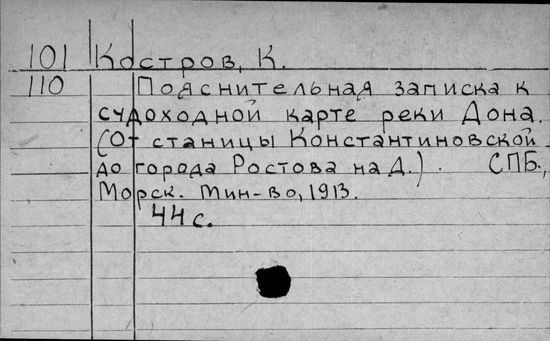 101 Костров, К.
110 Пояснительная записка к
судоходной карте реки Дона.
(От станицы Константиновской
до города Ростова на Д.). СПБ.,
Морск. мин-во, 1913.
44 с.